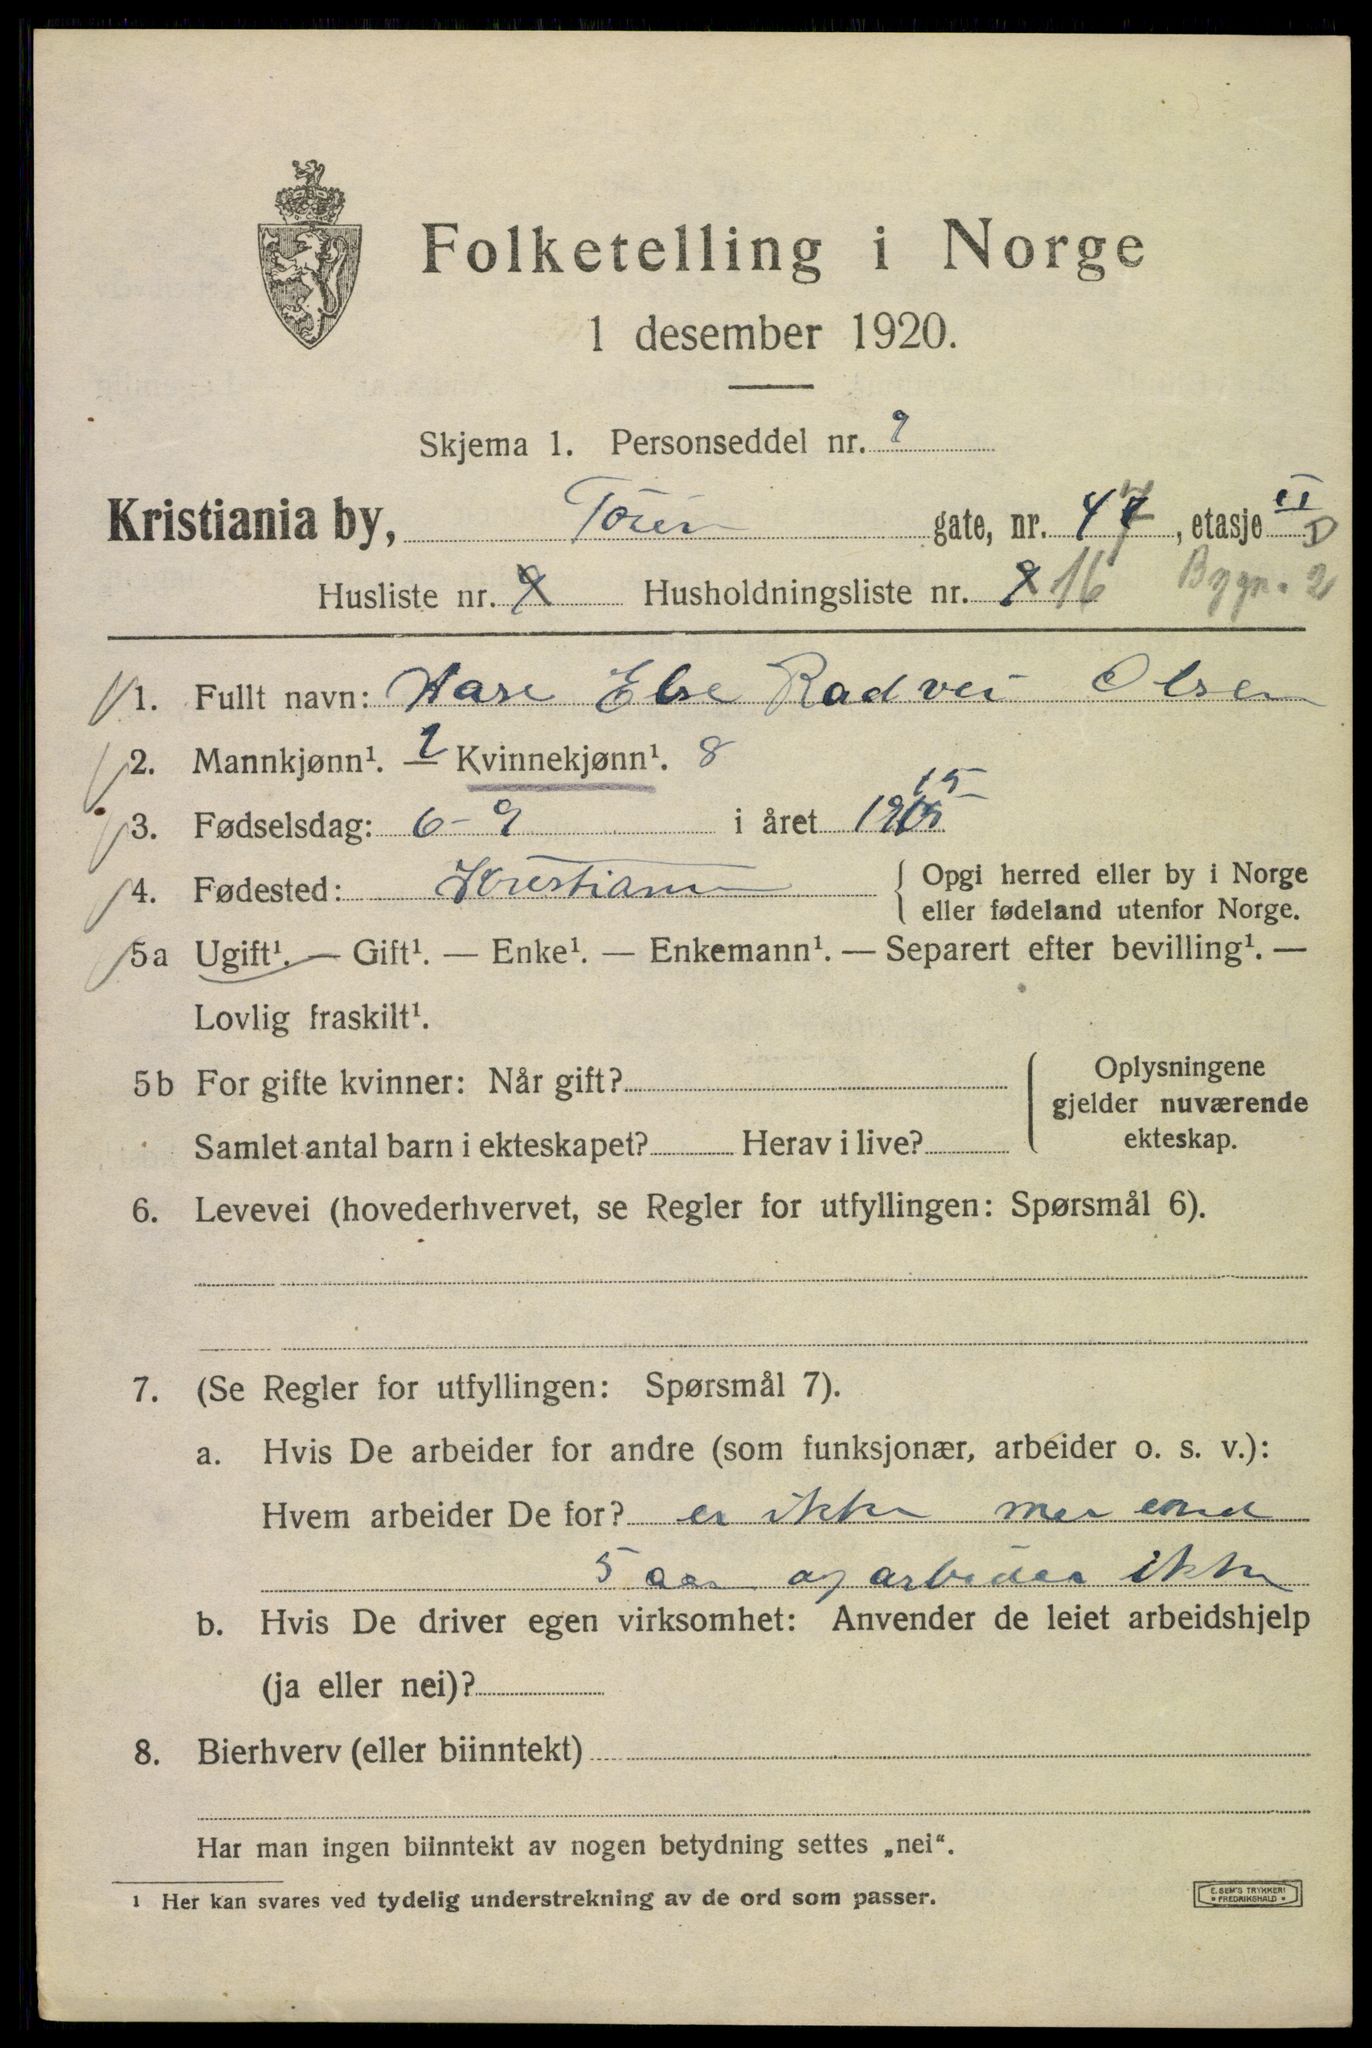 Folketelling i Norge
1 desember 1920.
Skjema 1. Personseddel nr. 9
Kristiania by, Tøien gate, nr. 47, etasje II D
Husliste nr. Husholdningsliste nr. 16 Bygn. 2
1. Fullt navn: Else Olsen
2. Mannkjønn¹. — Kvinnekjønn¹. 8
3. Fødselsdag: 6-9 i året 1915
4. Fødested: Kristiania { Opgi herred eller by i Norge
eller fødeland utenfor Norge.
5a Ugift¹. — Gift¹. — Enke¹. — Enkemann¹. — Separert efter bevilling¹. —
Lovlig fraskilt¹.
5b For gifte kvinner: Når gift?
Samlet antal barn i ekteskapet? Herav i live?
Oplysningene
gjelder nuværende
ekteskap.
6. Levevei (hovederhvervet, se Regler for utfyllingen: Spørsmål 6).
7. (Se Regler for utfyllingen: Spørsmål 7).
a. Hvis De arbeider for andre (som funksjonær, arbeider o. s. v.):
Hvem arbeider De for? er ikke mer end
5 aar og arbeider ikke
b. Hvis De driver egen virksomhet: Anvender de leiet arbeidshjelp
(ja eller nei)?
8. Bierhverv (eller biinntekt)
Har man ingen biinntekt av nogen betydning settes „nei“.
¹ Her kan svares ved tydelig understrekning av de ord som passer.
E. SEM'S TRYKKERI
FREDRIKSHALD